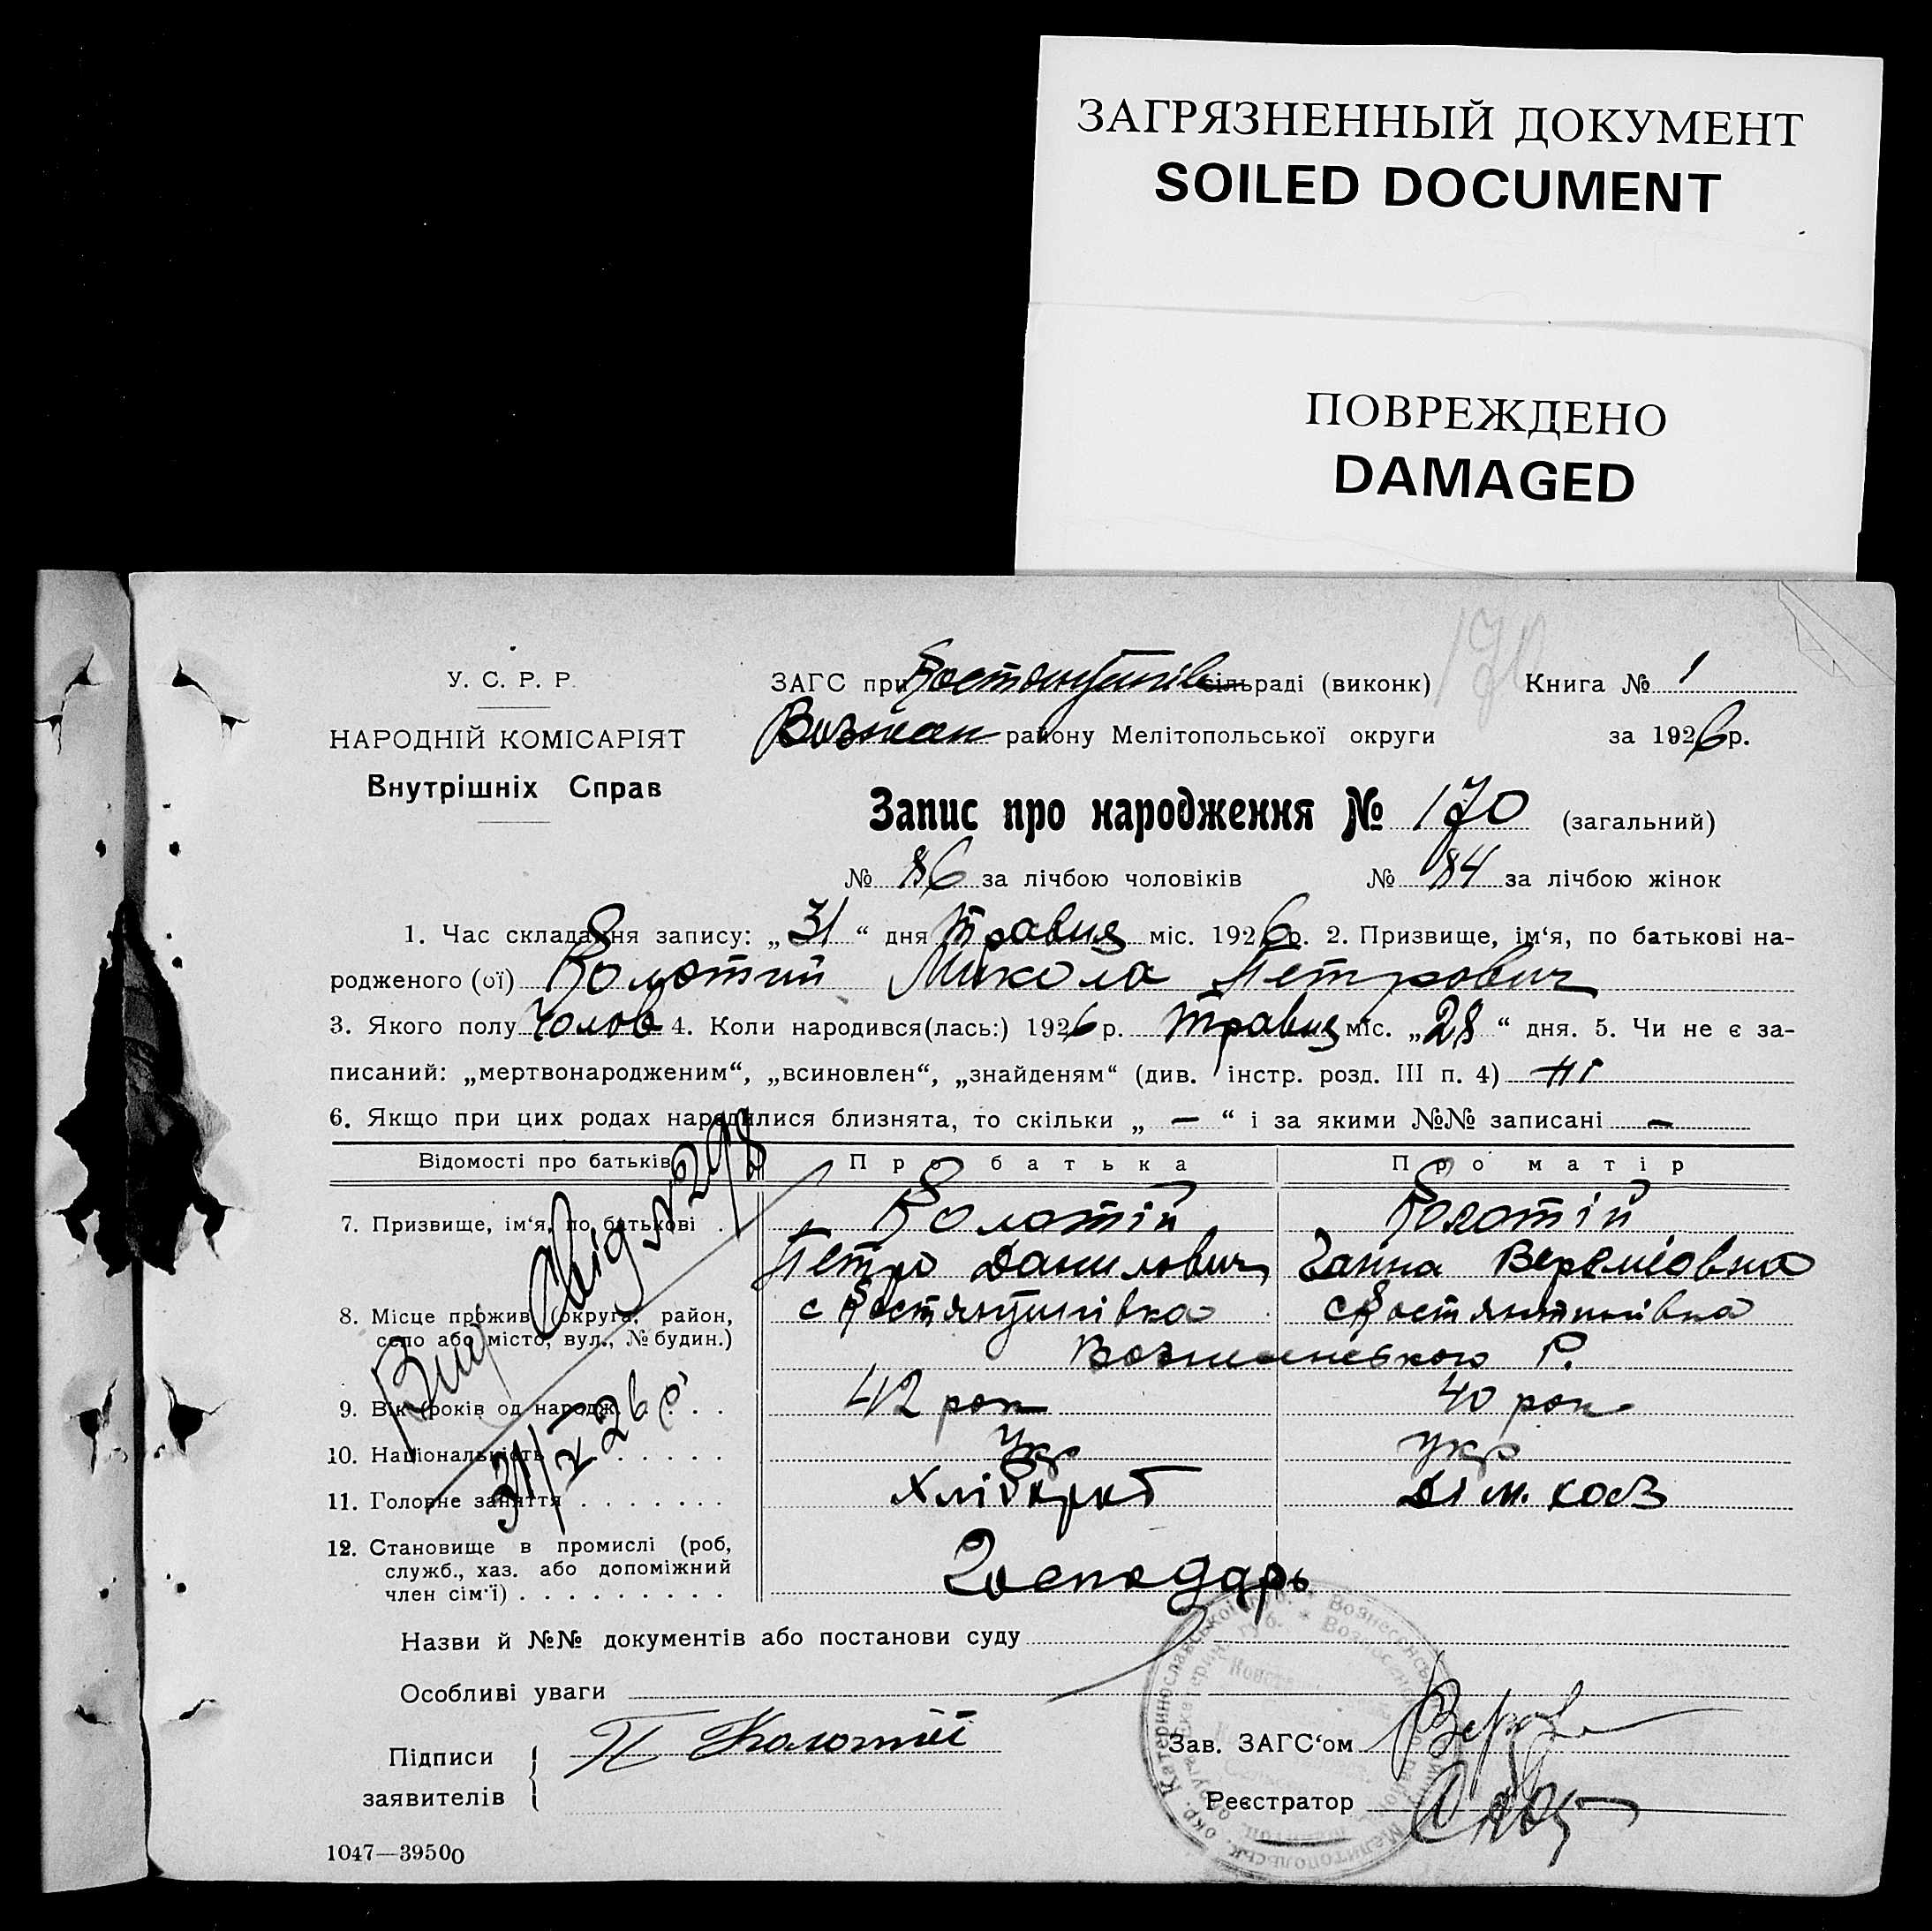 ЗАГРЯЗНЕННЫЙ ДОКУМЕНТ
SOILED DOCUMENT
ПОВРЕЖДЕНО
DAMAGED
170
У. С. Р. Р.
НАРОДНІЙ КОМІСАРІЯТ
Внутрішніх Справ
ЗАГС при Костянтинів сільраді (виконк) Книга № 1
Вознесен району Мелітопольської округи за 1926 р.
Запис про народження № 170 (загальний)
№ 86 за лічбою чоловіків № 84 за лічбою жінок
1. Час складання запису: „ 31 “ дня травня міс. 1926 р. 2. Призвище, ім‘я, по батькові на-
родженого (ої) Колотий Микола Петрович
3. Якого полу чолов 4. Коли народився(лась:) 1926 р. травня міс. „ 28 “ дня. 5. Чи не є за-
писаний: „мертвонародженим“, „всиновлен“, „знайденям“ (див. інстр. розд. III п. 4) ні
6. Якщо при цих родах народилися близнята, то скільки „ — “ і за якими №№ записані —
Відомості про батьків Про батька Про матір
7. Призвище, ім‘я, по батькові . Колотій Колотій
Петро Данилович Ганна Веремієвна
8. Місце прожив. (округа, район, с Костянтинівка с Костянтинівка
село або місто, вул., № будин.)
Вознесенського Р.
9. Вік (років од народж. . . . . 42 рок 40 рок
10. Національність . . . . . укр укр
11. Головне заняття . . . . . . . Хлібороб дом. хоз
12. Становище в промислі (роб,
служб., хаз. або допоміжний
член сім‘ї) . . . . . . . . . Господарь
Вид № 298
31/V 26 р
Назви й №№ документів або постанови суду
Особливі уваги
Підписи П Колотий Зав. ЗАГС‘ом
заявителів Реєстратор
1047—39500